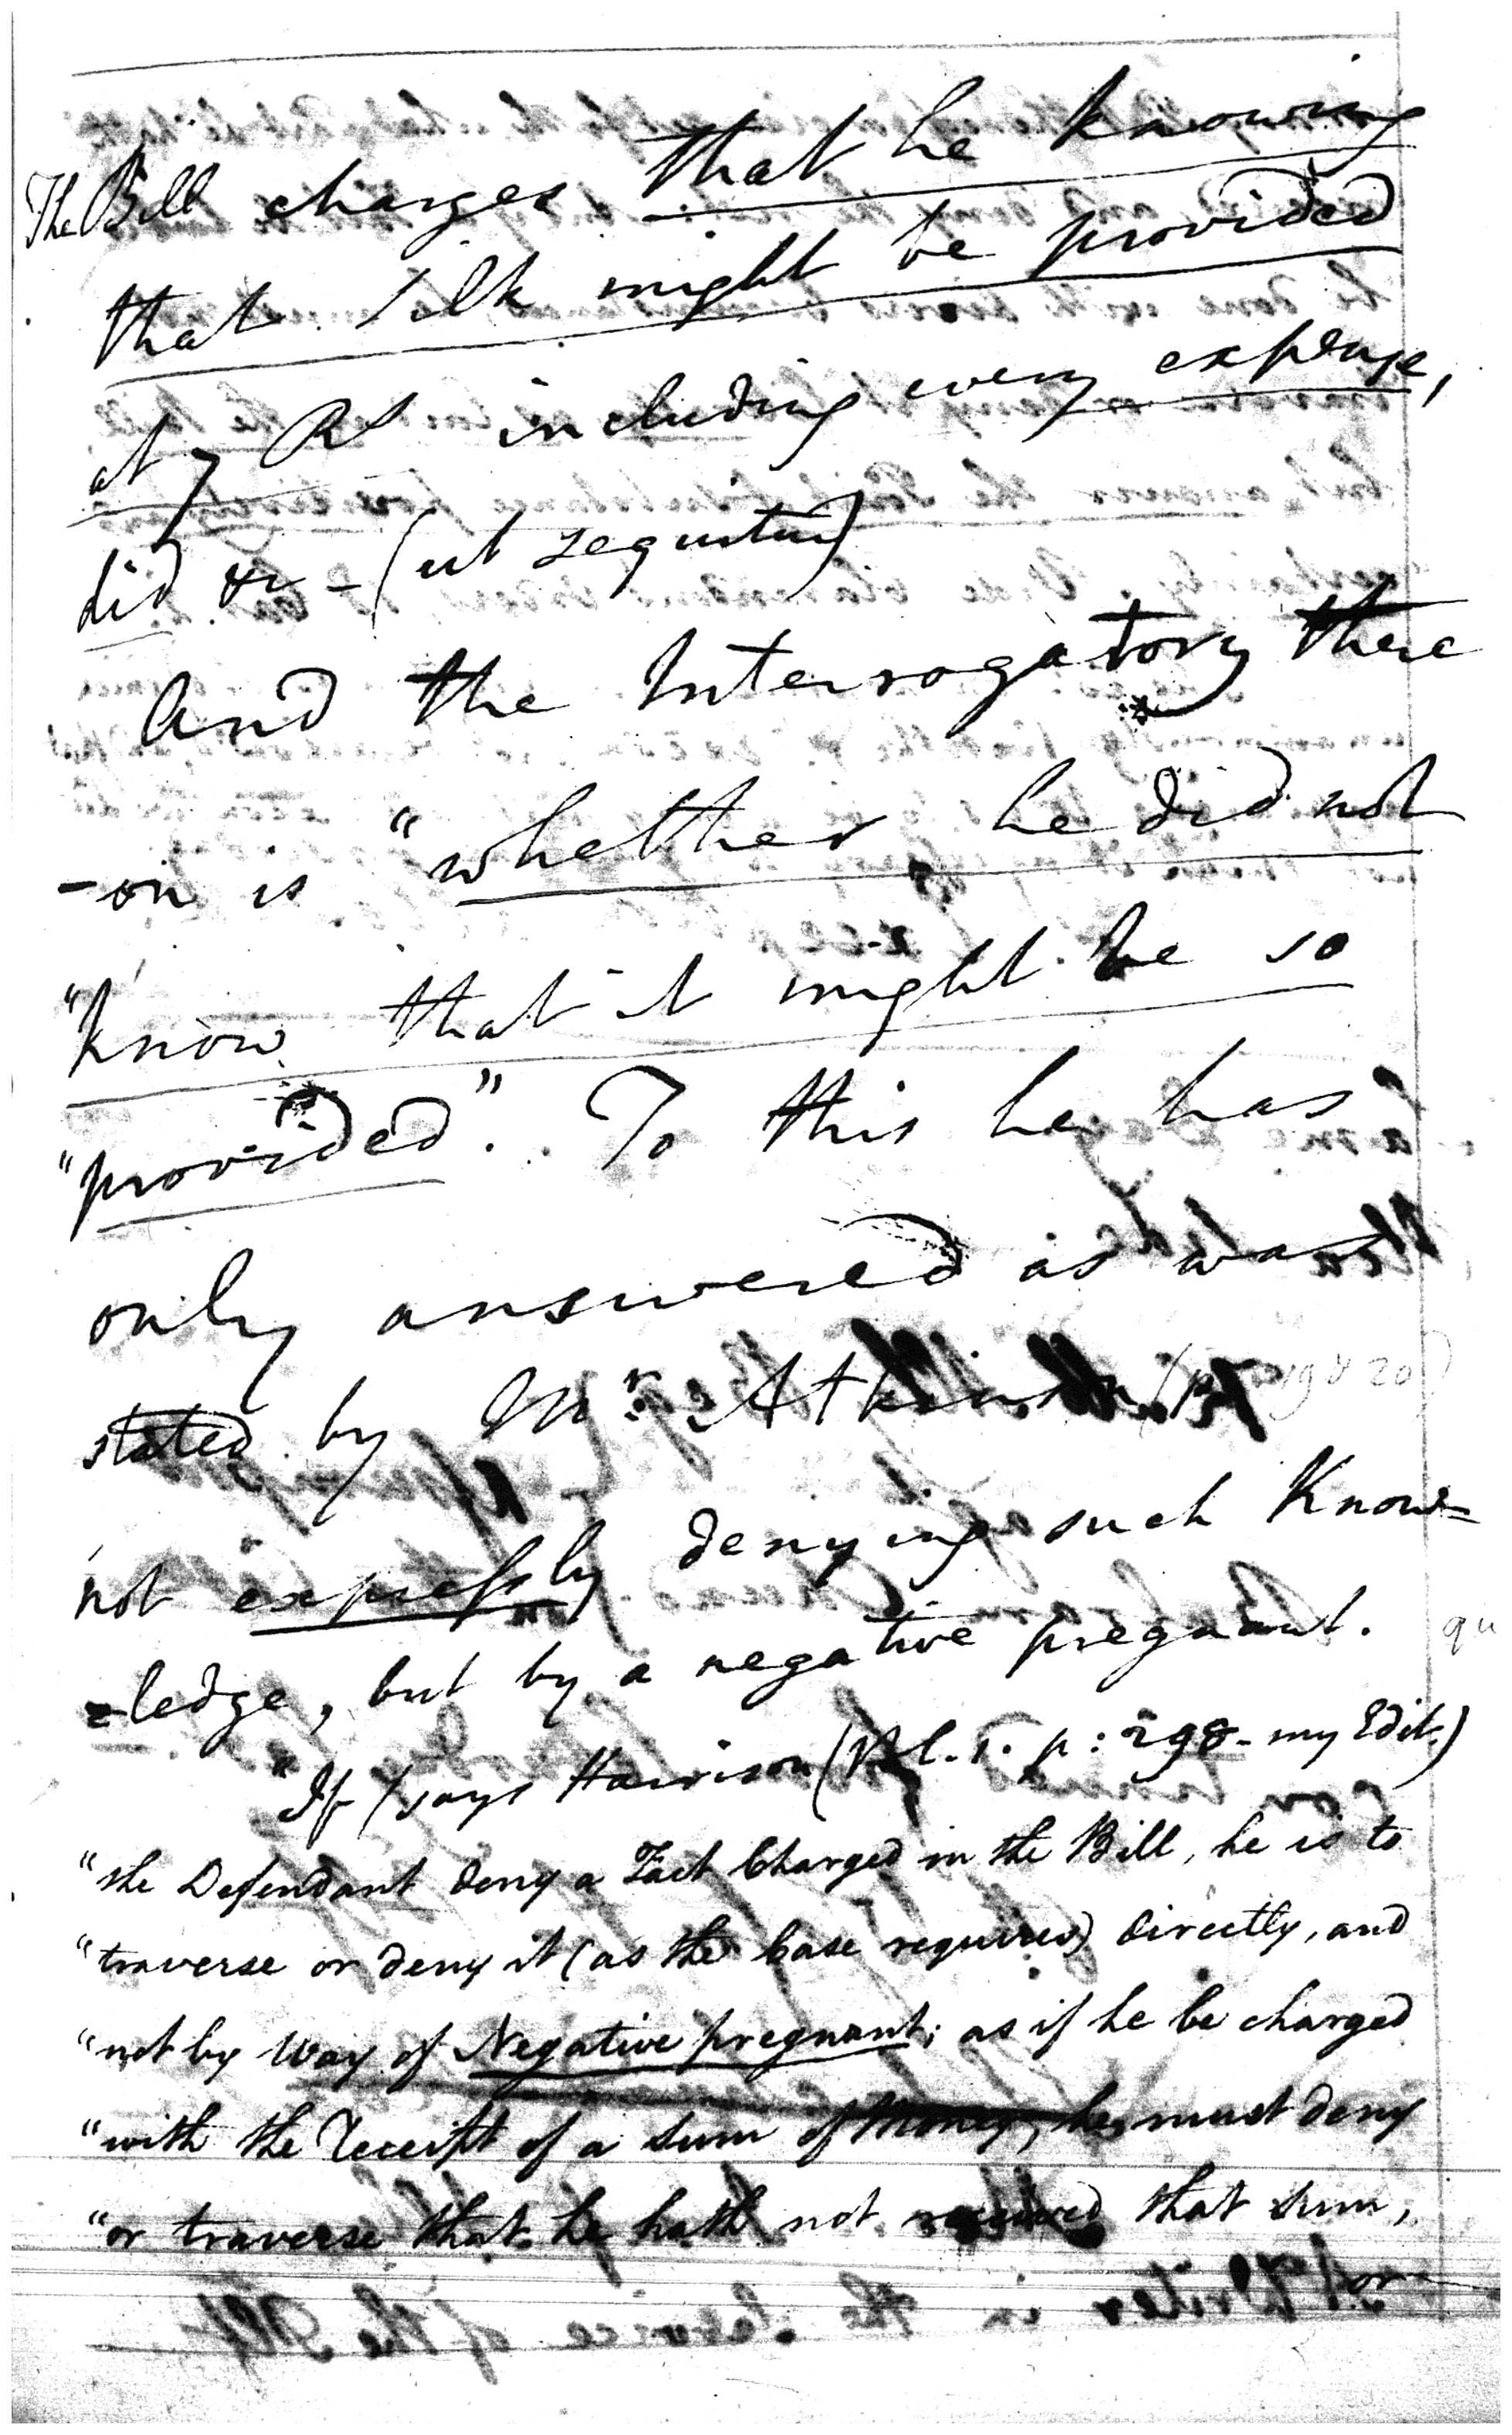 The Bill charges that he knowing
that Silk might be provided
at 7 Rs including every expense,
did &c - (ut sequitur)
And the Interrogatory there
-on is "whether he did not
"know that it might be so
"provided". To this he has
only answered as was
stated by Mr. Atkinson (p. 19 & 20)
not expressly denying such Know=
=ledge, but by a negative pregnant.
qu
"If (says Harrison ( p: 298 - my Edit.)
"the Defendant deny a Fact Charged in the Bill, he is to
"traverse or deny it (as the Case requires) directly, and
"not by Way of Negative pregnant; as if he be charged
"with the Receipt of a Sum of Money, he must deny
"or traverse that he hath not received that Sum,
or